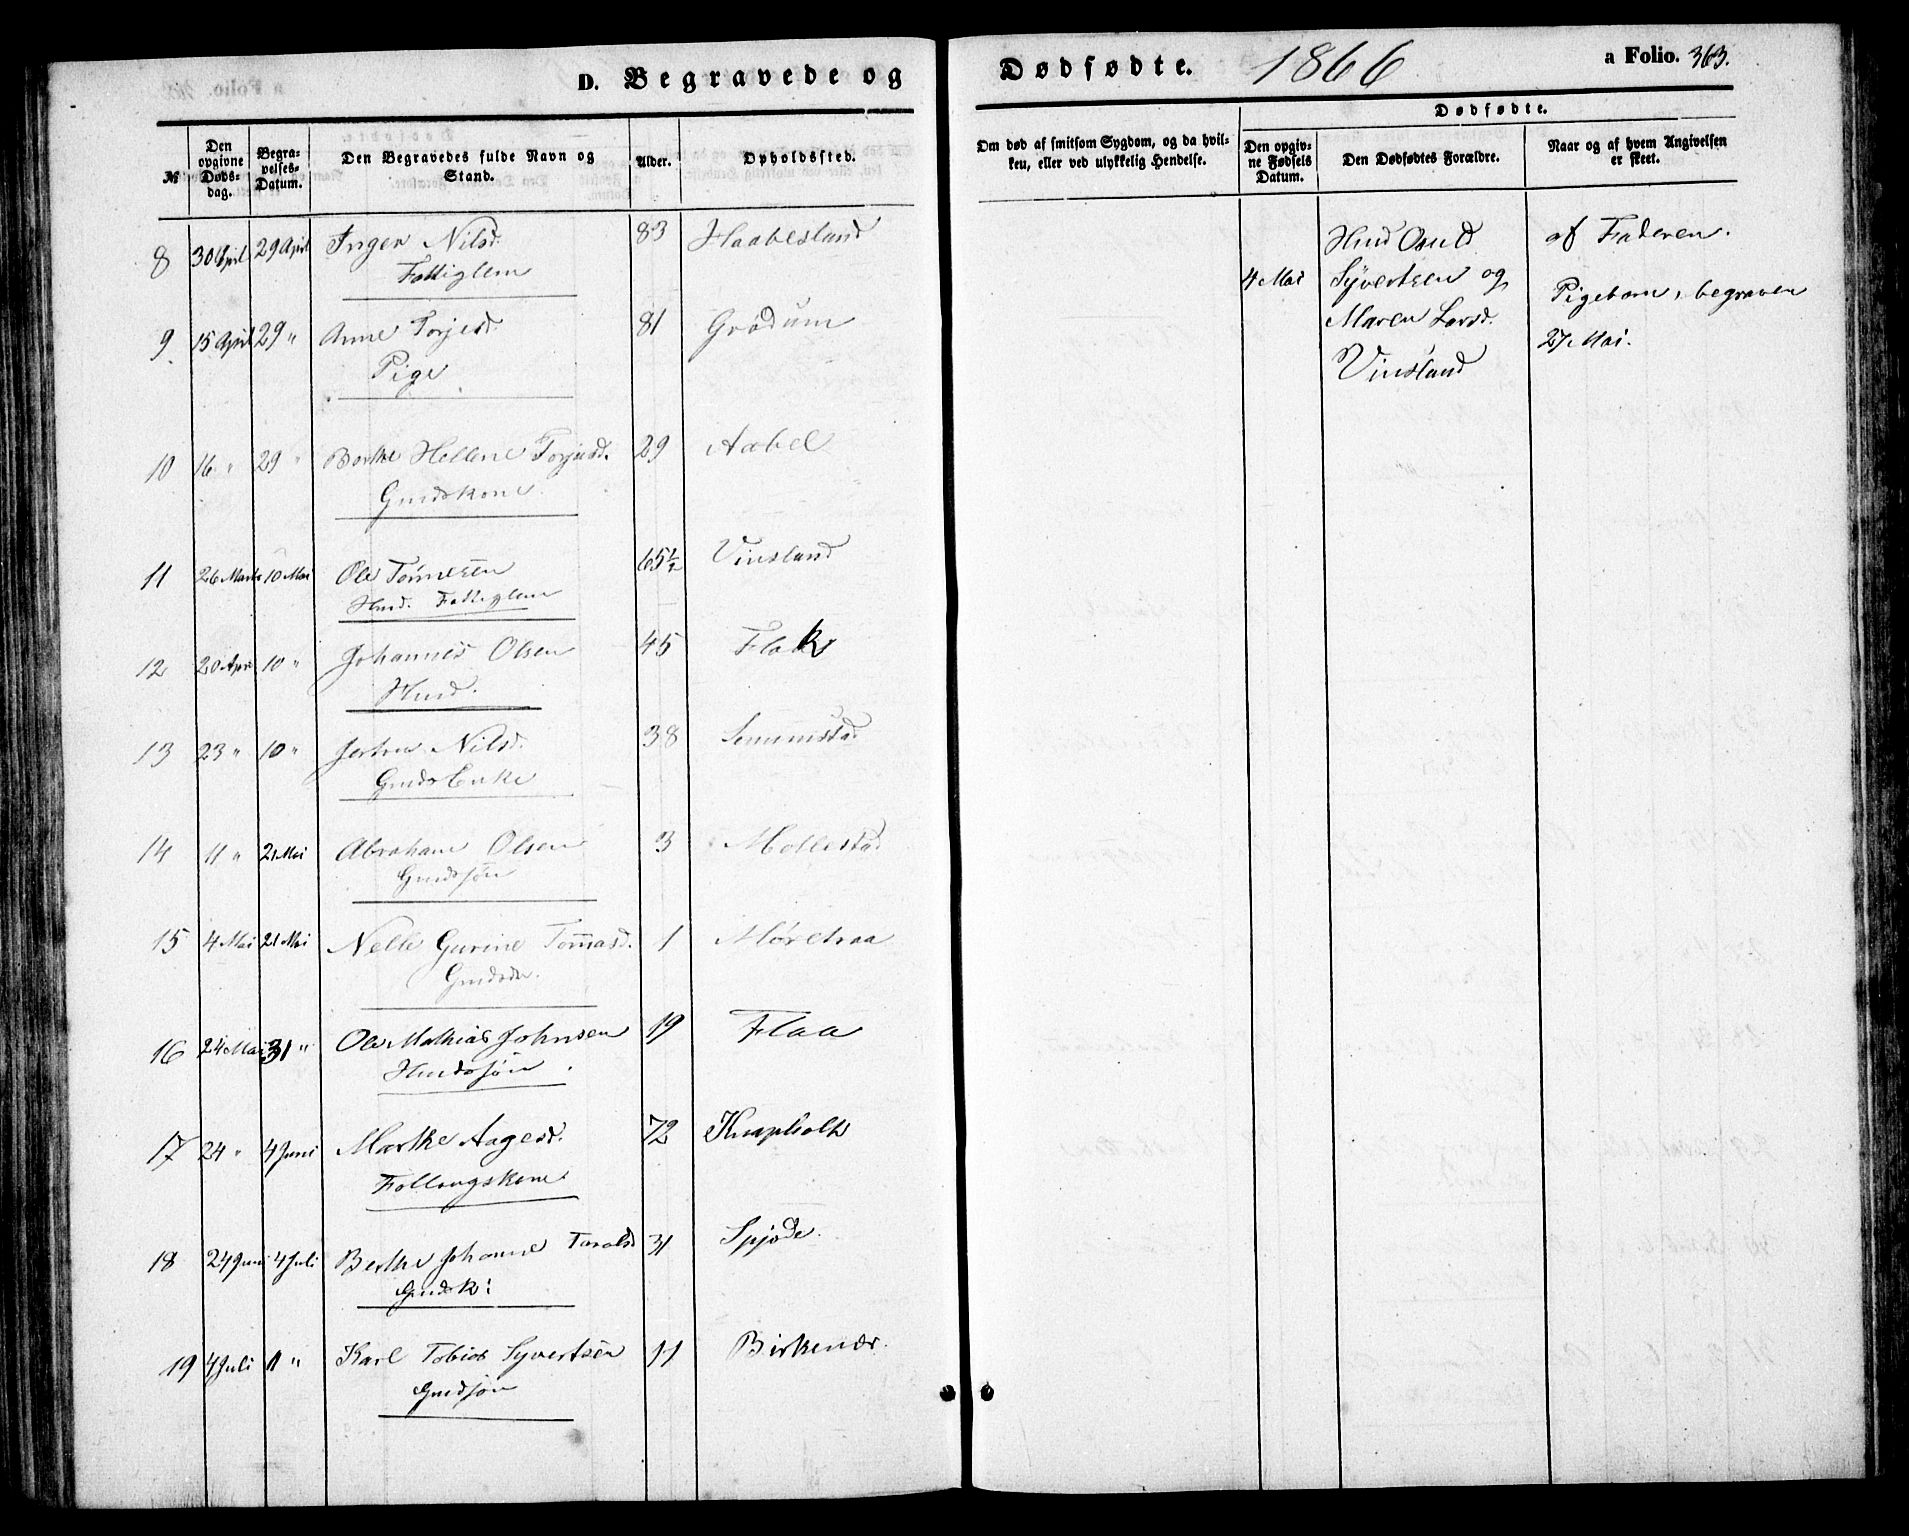 D. Begravede og
Dødfødte. 1866 a Folio. 363.
№
Den opgivne Døds-dag.
Begra-velses-Datum.
Den Begravedes fulde Navn og Stand.
Alder.
Opholdssted.
Om død af smitsom Sygdom, og da hvil-
ken, eller ved ulykkelig Hendelse.
Dødfødte.
Den opgiv-ne Fødsels Datum.
Den Dødfødtes Forældre.
Naar og af hvem Angivelsen
er skeet.
8 30 April 29 April Inger Nilsd. 83 Haabesland
Fattiglem
9 15 April 29 " Anne Torjesd. 81 Grødum
Pige
10 16 " 29 " Berthe Hellene Torjusd. 29 Aabel
Gmdskone
11 26 Marts 10 Mai Ole Tønnesen 65½ Vinsland
Hmd. Fattiglem
12 20 Apr 10 " Johannes Olsen 45 Flak
Hmd.
13 23 " 10 " Nilsd. 38
Gmds Enke
14 11 " 21 Mai Abraham Olsen 3 Mollestad
Gmdssøn
15 4 Mai 21 Mai Nelle Gurine Tomasd. 1 Møretraa
Gmdsdr.
16 24 Mai 31 " Ole Mathias Johnsen 19 Flaa
Hmdssøn
17 24 " 4 Juni Marthe Aagesd. 72 Knapholt
Follougskone
18 24 Juni 4 Juli Berthe Johanne Taralsd 31 Spjode.
Gmdsk:
19 4 Juli 11 " Karl Tobias Syvertsen 11 Birkenær.
Gmdsøn
4 Mai
Hmd Osuld
Syvertsen og
Maren Larsd.
Vinsland
af Faderen.
Pigebarn, begraven
27 Mai.